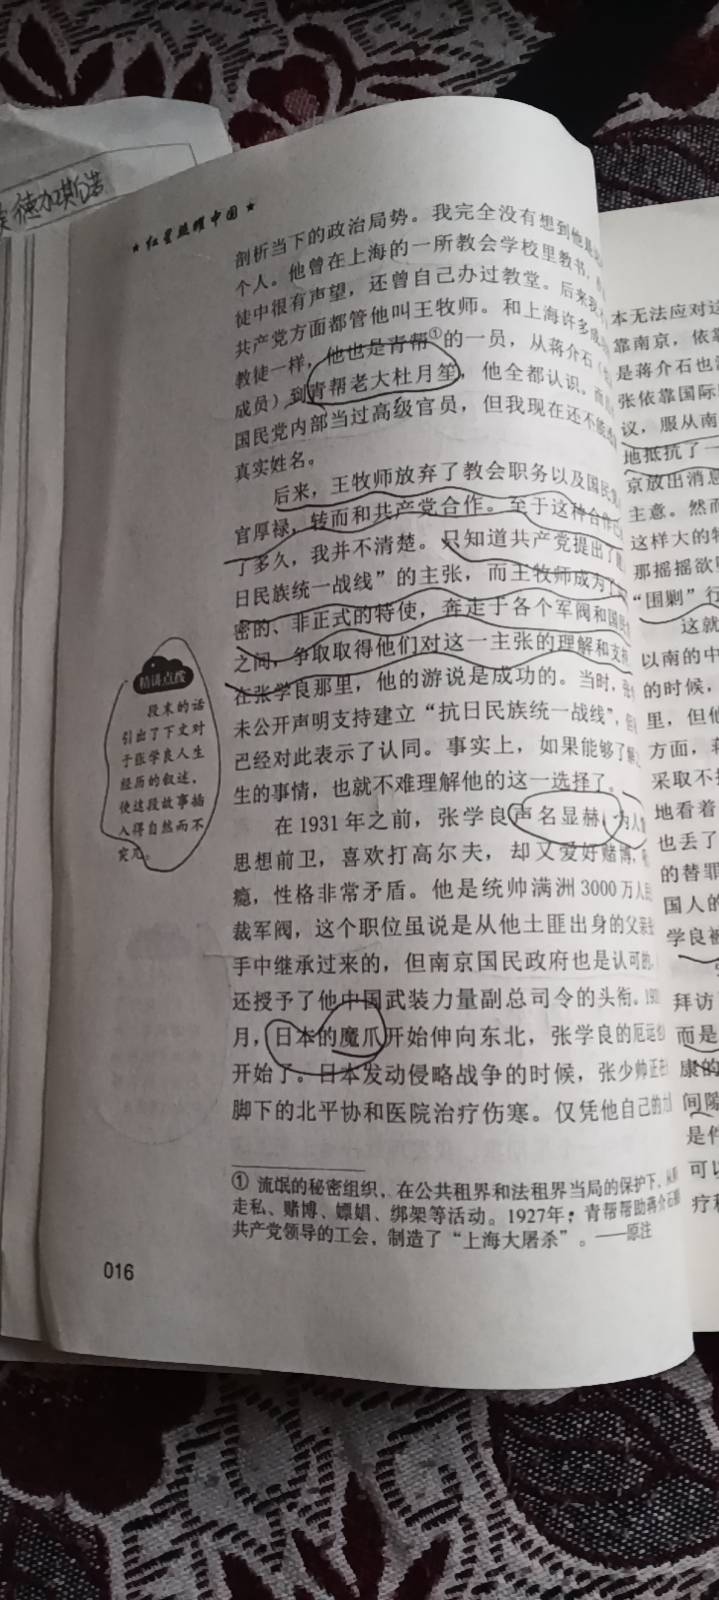 德加斯诺
★红星照耀中国★
剖析当下的政治局势。我完全没有想到他是
个人。他曾在上海的一所教会学校里教书，
徒中很有声望，还曾自己办过教堂。后来我
共产党方面都管他叫王牧师。和上海许多成
教徒一样，他也是青帮①的一员，从蒋介石（
成员）到青帮老大杜月笙，他全都认识。
国民党内部当过高级官员，但我现在还不能
真实姓名。
后来，王牧师放弃了教会职务以及国民党
官厚禄，转而和共产党合作。至于这种合作
了多久，我并不清楚。只知道共产党提出了
日民族统一战线”的主张，而王牧师成为了
密的、非正式的特使，奔走于各个军阀和国民
之间，争取取得他们对这一主张的理解和支持
在张学良那里，他的游说是成功的。当时，
未公开声明支持建立“抗日民族统一战线”，
已经对此表示了认同。事实上，如果能够了解
生的事情，也就不难理解他的这一选择了。
在1931年之前，张学良声名显赫，为人
思想前卫，喜欢打高尔夫，却又爱好赌博，
瘾，性格非常矛盾。他是统帅满洲3000万人
裁军阀，这个职位虽说是从他土匪出身的父亲
手中继承过来的，但南京国民政府也是认可的，
还授予了他中国武装力量副总司令的头衔。
月，日本的魔爪开始伸向东北，张学良的厄运也
开始了。日本发动侵略战争的时候，张少帅正在
脚下的北平协和医院治疗伤寒。仅凭他自己的力
精读点拨
段末的话
引出了下文对
于张学良人生
经历的叙述，
使这段故事插
入得自然而不
突兀。
① 流氓的秘密组织，在公共租界和法租界当局的保护下，从事
走私、赌博、嫖娼、绑架等活动。1927年，青帮帮助蒋介石
共产党领导的工会，制造了“上海大屠杀”。——原注
016
本无法应对这
靠南京，依靠
是蒋介石也
张依靠国际
议，服从南
地抵抗了一
京放出消息
主意。然而
这样大的
那摇摇欲
“围剿”行
这就
以南的中
的时候，
里，但他
方面，蒋
采取不抵
地看着
也丢了
的替罪
国人的
学良被
拜访
而是
康的
间隙
是件
可以
疗和